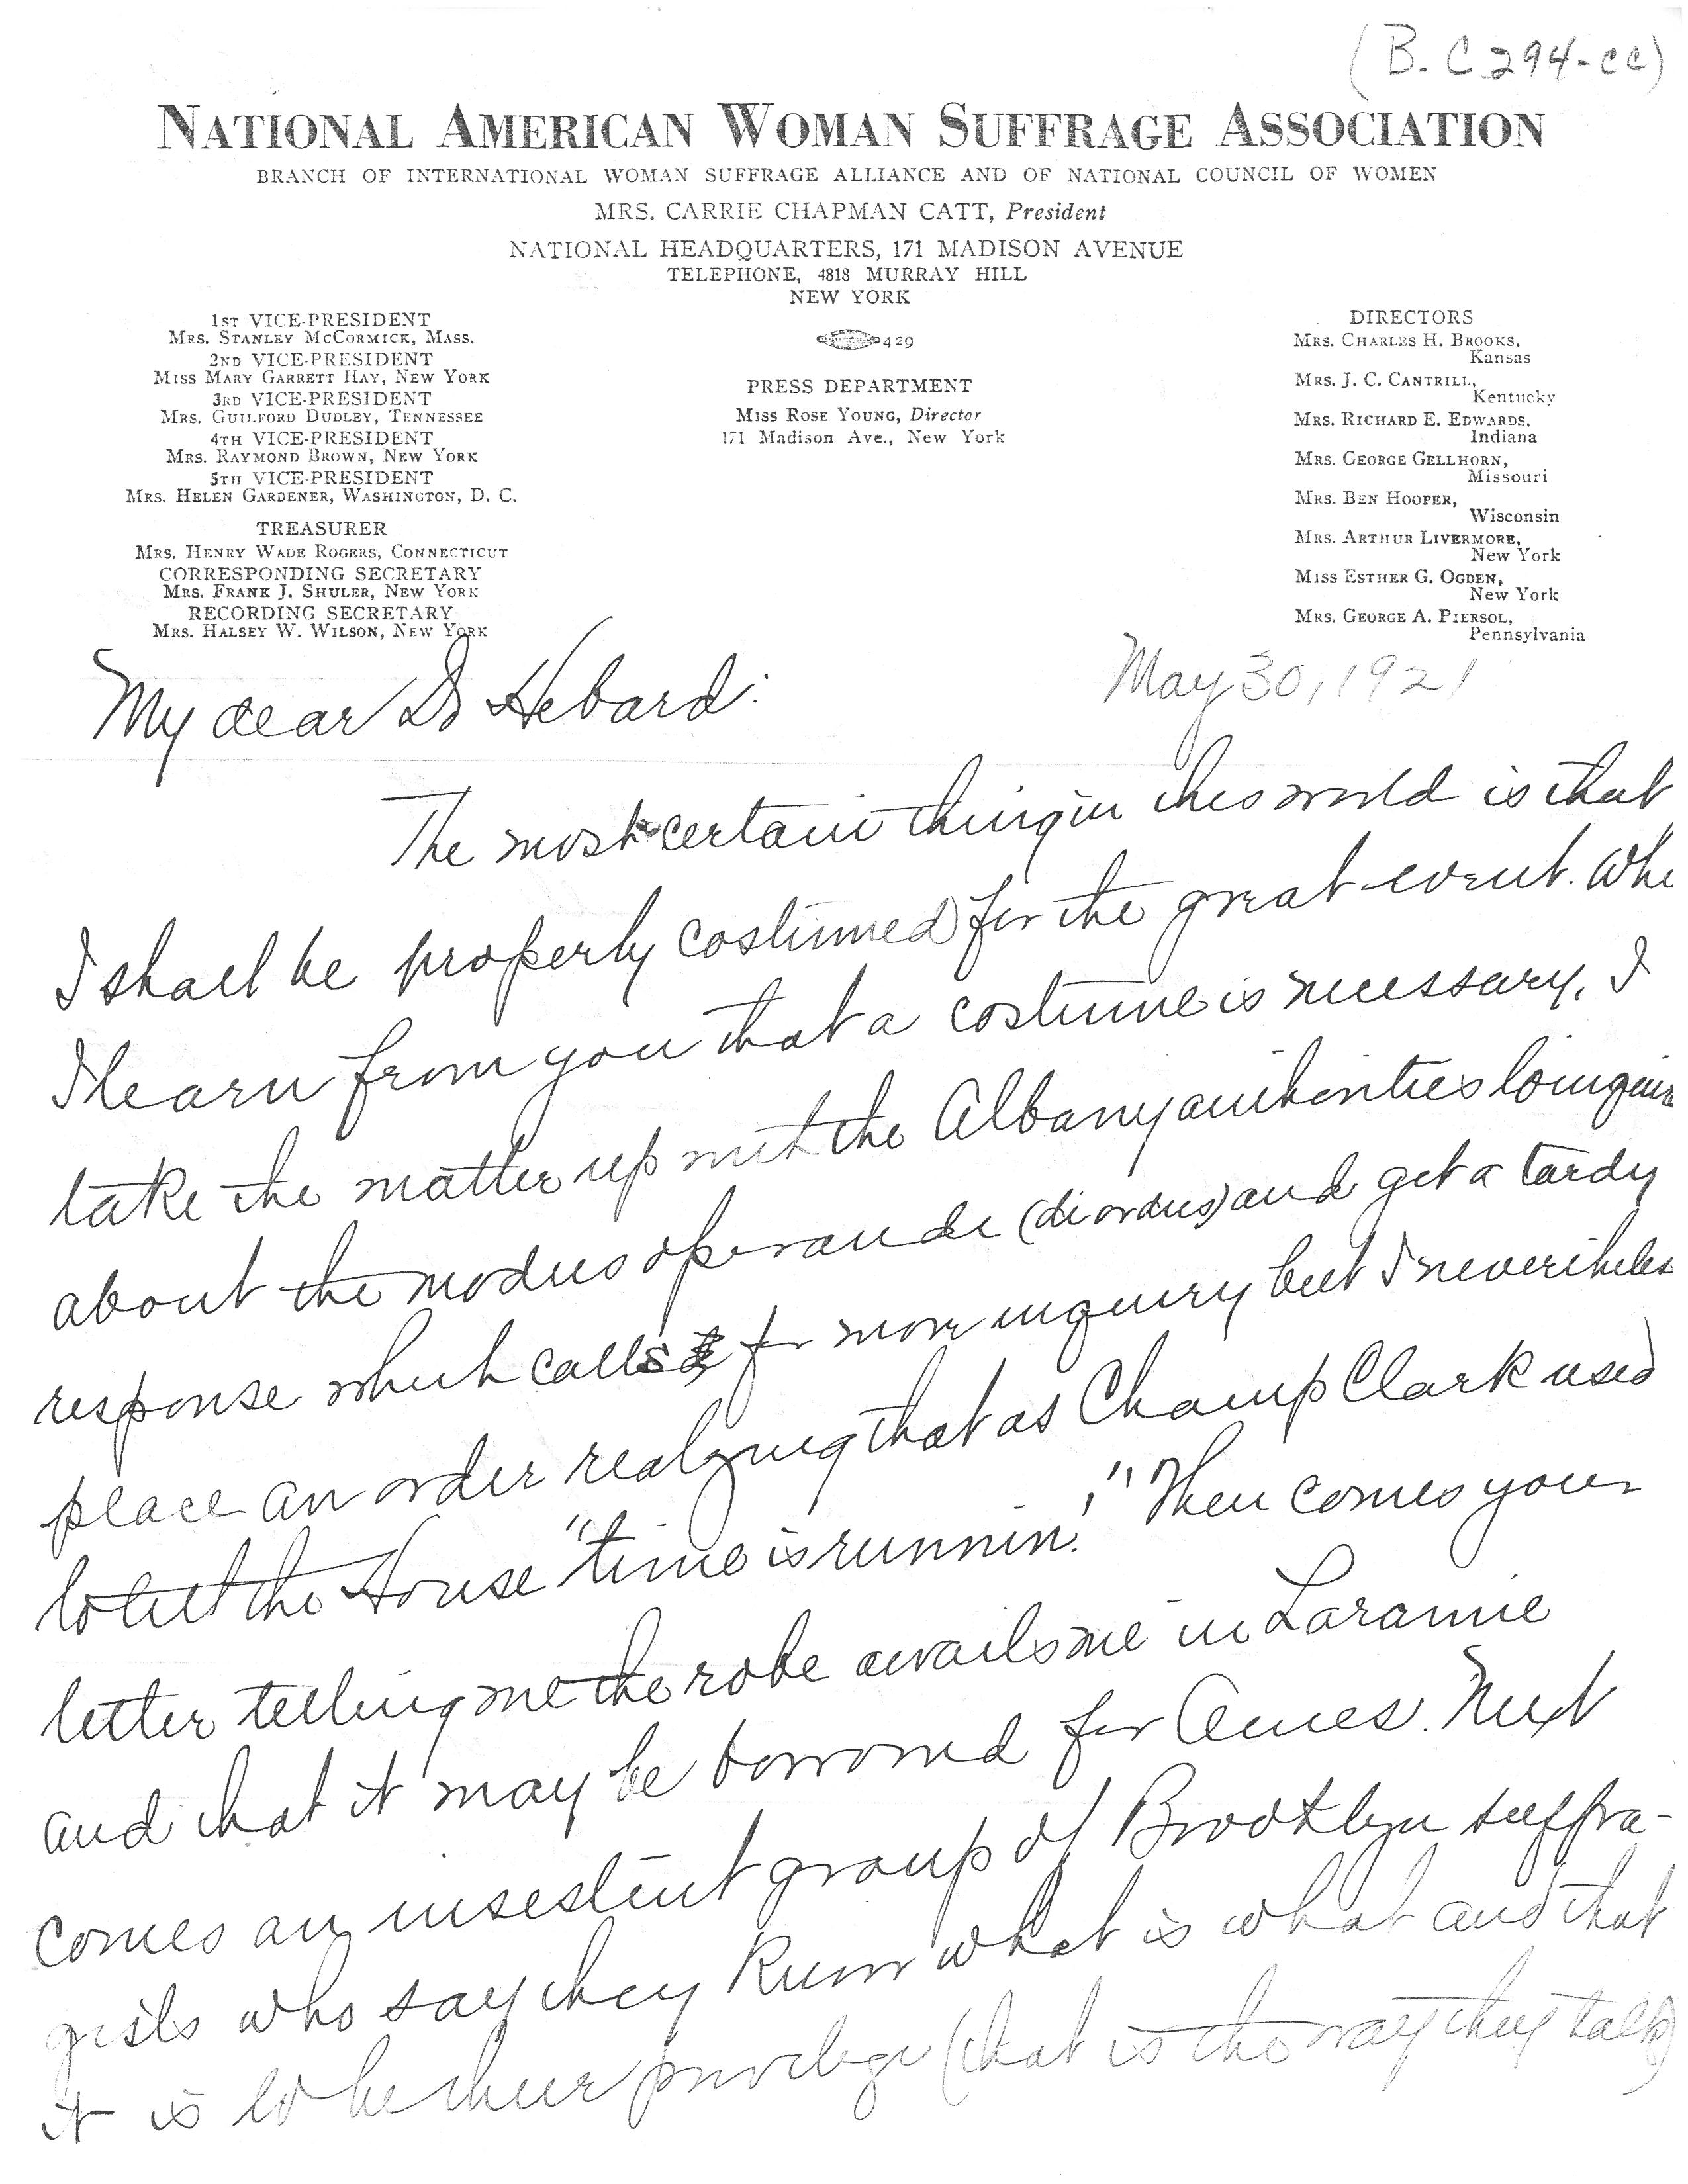 (B. C 294-cc)
NATIONAL AMERICAN WOMAN SUFFRAGE ASSOCIATION
BRANCH OF INTERNATIONAL WOMAN SUFFRAGE ALLIANCE AND OF NATIONAL COUNCIL OF WOMEN
MRS. CARRIE CHAPMAN CATT, President
NATIONAL HEADQUARTERS, 171 MADISON AVENUE
TELEPHONE, 4818 MURRAY HILL
NEW YORK
1ST VICE-PRESIDENT
MRS. STANLEY MCCORMICK, MASS.
2ND VICE-PRESIDENT
MISS MARY GARRETT HAY, NEW YORK
3RD VICE-PRESIDENT
MRS. GUILFORD DUDLEY, TENNESSEE
4TH VICE-PRESIDENT
MRS. RAYMOND BROWN, NEW YORK
5TH VICE-PRESIDENT
MRS. HELEN GARDENER, WASHINGTON, D. C.
TREASURER
MRS. HENRY WADE ROGERS, CONNECTICUT
CORRESPONDING SECRETARY
MRS. FRANK J. SHULER, NEW YORK
RECORDING SECRETARY
MRS. HALSEY W. WILSON, NEW YORK
429
PRESS DEPARTMENT
MISS ROSE YOUNG, Director
171 Madison Ave., New York
DIRECTORS
MRS. CHARLES H. BROOKS,
Kansas
MRS. J. C. CANTRILL,
Kentucky
MRS. RICHARD E. EDWARDS,
Indiana
MRS. GEORGE GELLHORN,
Missouri
MRS. BEN HOOPER,
Wisconsin
MRS. ARTHUR LIVERMORE,
New York
MISS ESTHER G. OGDEN,
New York
MRS. GEORGE A. PIERSOL,
Pennsylvania
May 30, 1921
My dear Dr Hebard:
The most certain thing in this world is that
I shall be properly costumed for the great event. Whe
I learn from you that a costume is necessary, I
take the matter up with the Albany authorities
about the modus operande and get a tardy
response which calls for more inquiry but I nevertheless
place an order realizing that as Champ Clark used
to tell the House "time is runnin!" Then comes your
letter telling me the robe awaits me in Laramie
and that it may be borrowed for Ames. Next
comes an insistent group of Brooklyn suffra-
gists who say they know what is what and that
it is to be their privilege (that is the way they talk)